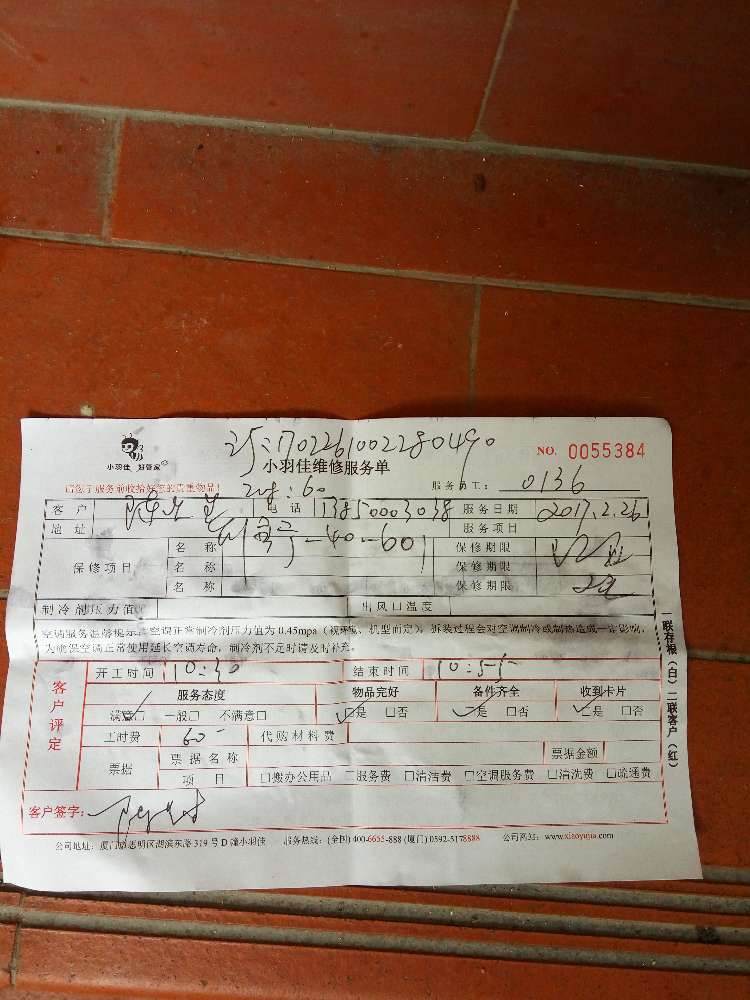 1702261002280490
NO. 0055384
小羽佳 好管家
小羽佳维修服务单
请您于服务前收拾好您的贵重物品!
服务员工: 0136
客户 电话 13850003038 服务日期 2017.2.26
地址 -40-601 服务项目
保修项目 名称 保修期限
名称 保修期限
名称 保修期限
制冷剂压力值 出风口温度
空调服务温馨提示:空调正常制冷剂压力值为0.45mpa(视环境、机型而定),拆装过程会对空调制冷或制热造成一定影响,
为确保空调正常使用延长空调寿命,制冷剂不足时请及时补充。
一联存根(白)二联客户(红)
客户评定
开工时间 10:30 结束时间 10:55
服务态度 物品完好 备件齐全 收到卡片
满意□ 一般□ 不满意□ □是 □否 □是 □否 □是 □否
工时费 60 代购材料费
票据 票据名称 票据金额
项目 □搬办公用品 □服务费 □清洁费 □空调服务费 □清洗费 □疏通费
客户签字:
公司地址:厦门市思明区湖滨东路319号D幢小羽佳 服务热线:(全国)400-6655-888 (厦门)0592-5178888 公司网站:www.xiaoyujia.com